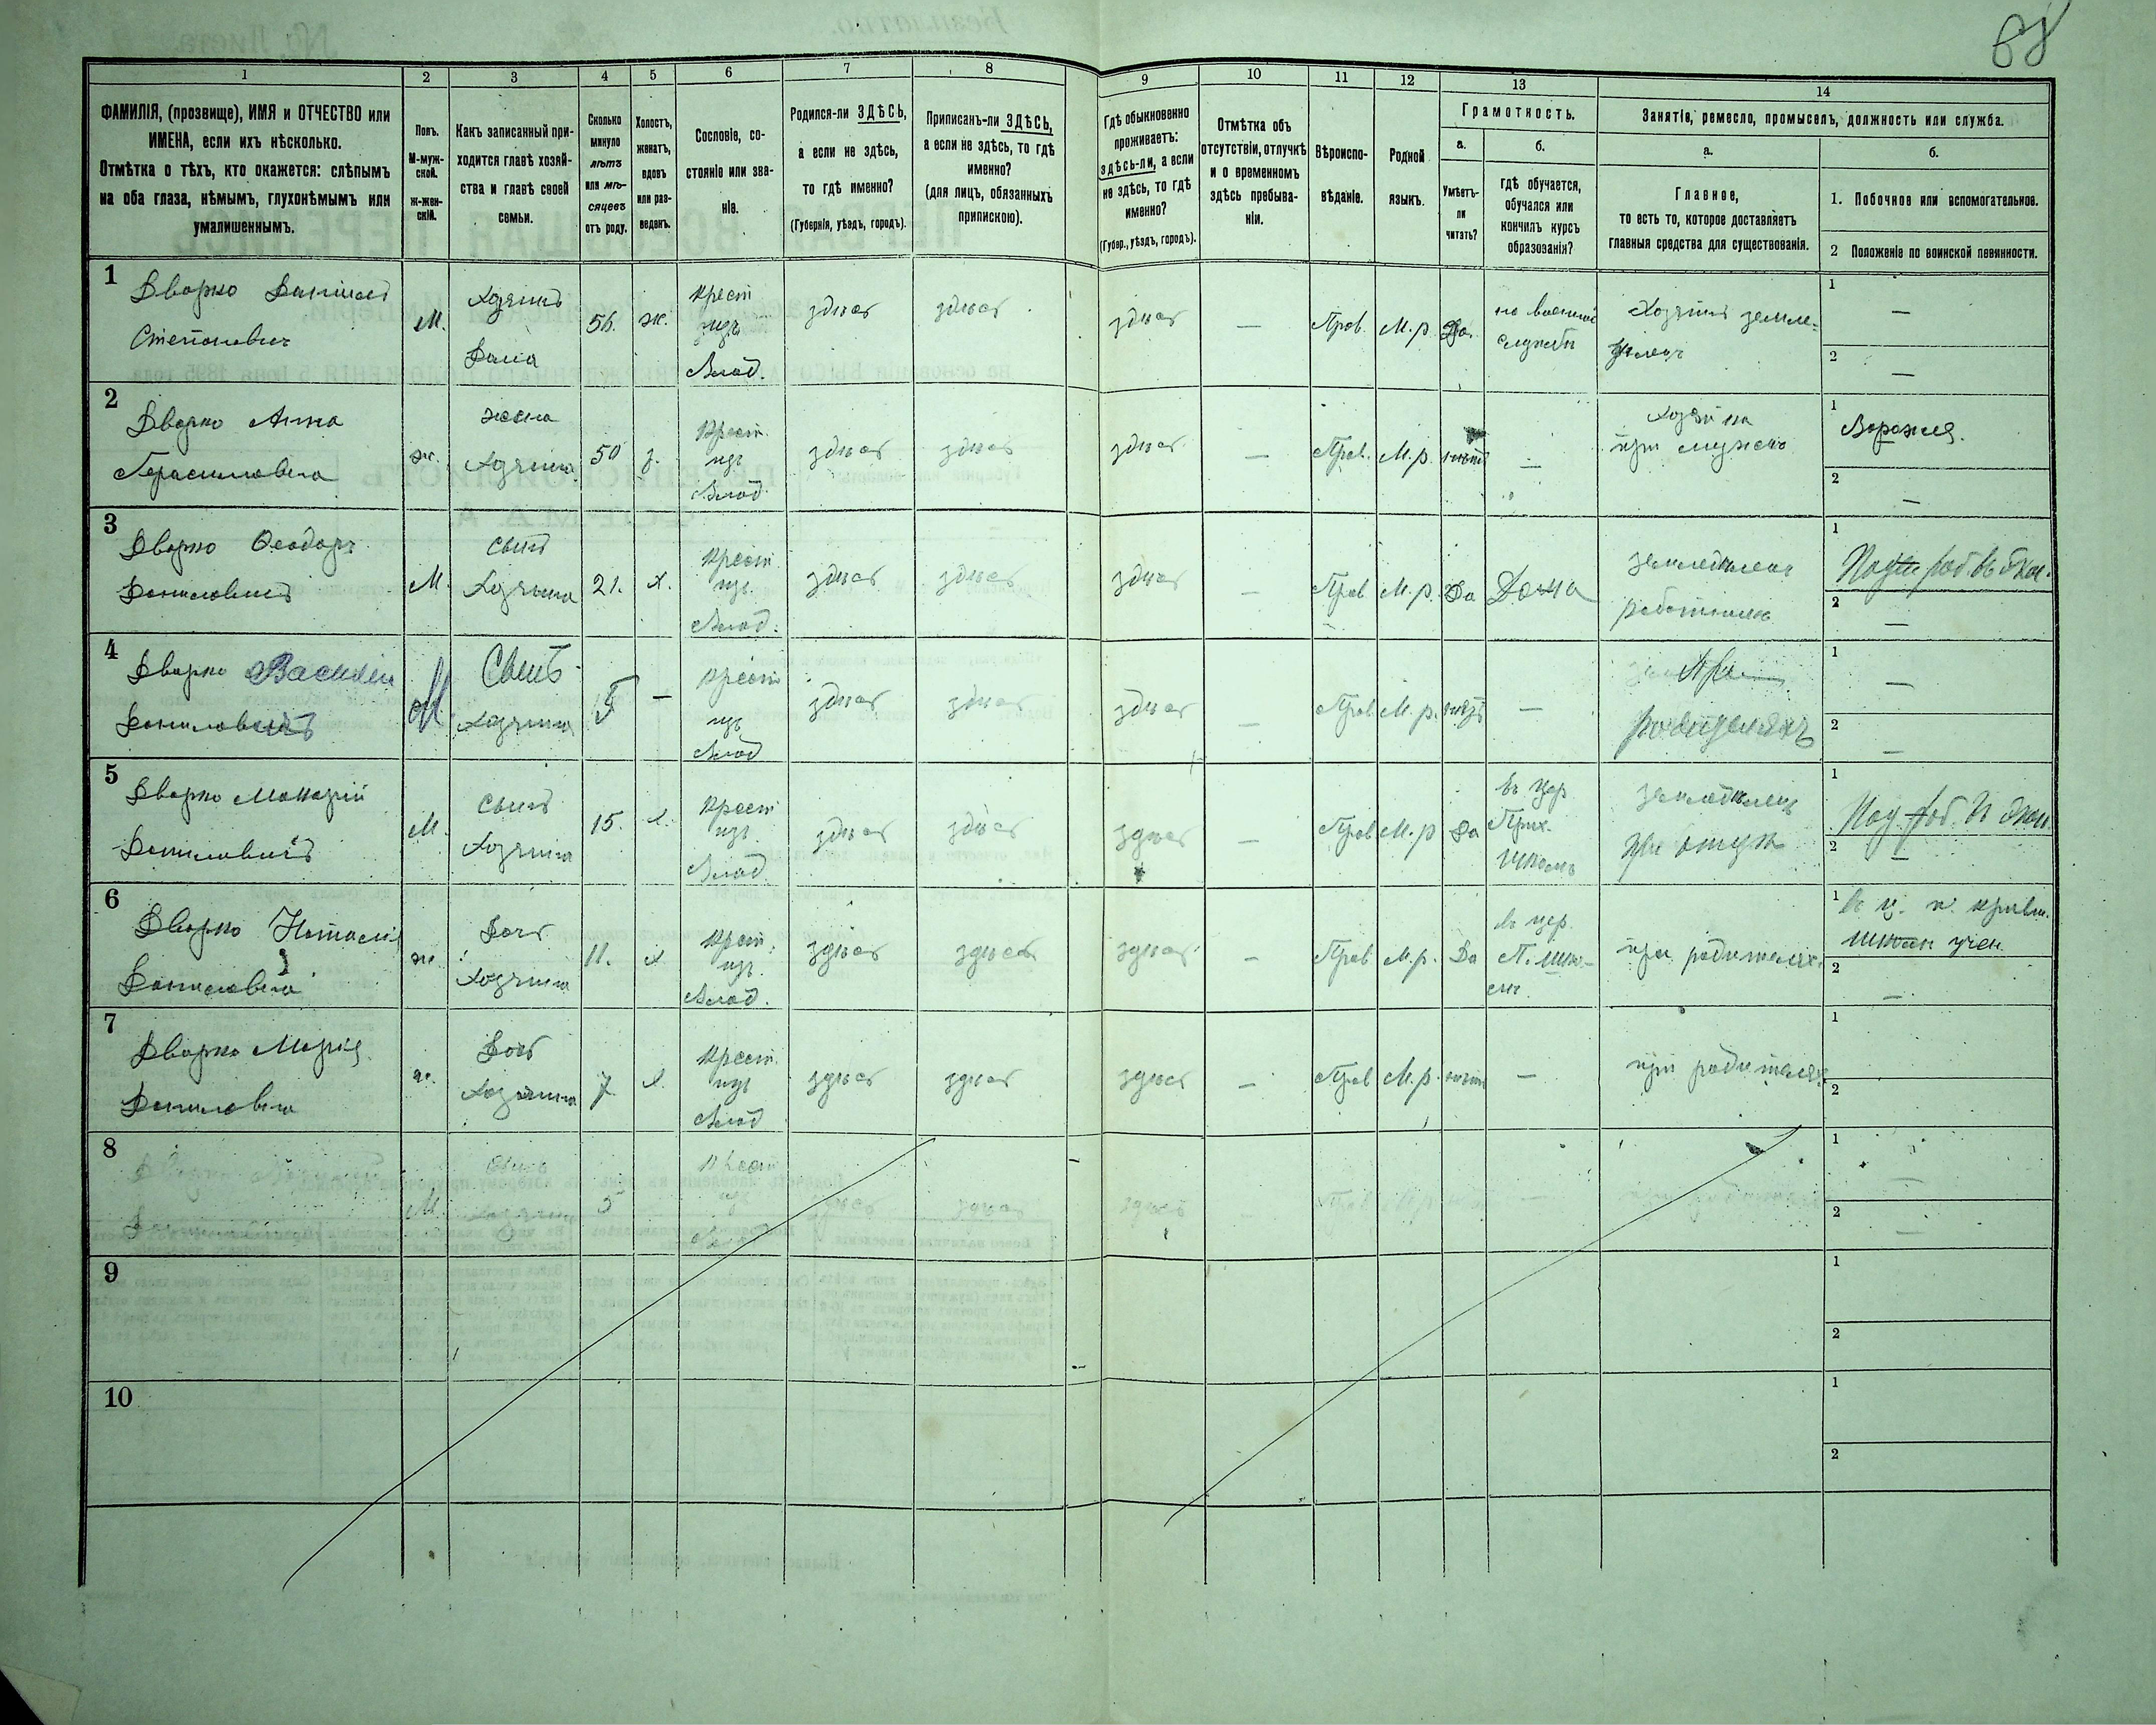 68
1
2
3
4
5
6
7
8
9
10
11
12
13
14
ФАМИЛІЯ, (прозвище), ИМЯ и ОТЧЕСТВО или
ИМЕНА, если ихъ нѣсколько.
Отмѣтка о тѣхъ, кто окажется: слѣпымъ
на оба глаза, нѣмымъ, глухонѣмымъ или
умалишеннымъ.
Полъ.
М-муж-
ской.
ж-жен-
скій.
Какъ записанный при-
ходится главѣ хозяй-
ства и главѣ своей
семьи.
Сколько
минуло
лѣтъ
или мѣ-
сяцевъ
отъ роду.
Холостъ,
женатъ,
вдовъ
или раз-
веденъ.
Сословіе, со-
стояніе или зва-
ніе.
Родился-ли ЗДѢСЬ,
а если не здѣсь,
то гдѣ именно?
(Губернія, уѣздъ, городъ).
Приписанъ-ли ЗДѢСЬ,
а если не здѣсь, то гдѣ
именно?
(для лицъ, обязанныхъ
припискою).
Гдѣ обыкновенно
проживаетъ:
здѣсь-ли, а если
не здѣсь, то гдѣ
именно?
(Губер., уѣздъ, городъ).
Отмѣтка объ
отсутствіи, отлучкѣ
и о временномъ
здѣсь пребыва-
ніи.
Вѣроиспо-
вѣданіе.
Родной
языкъ.
Грамотность.
а.
Умѣетъ-
ли
читать?
б.
гдѣ обучается,
обучался или
кончилъ курсъ
образованія?
Занятіе, ремесло, промыселъ, должность или служба.
а.
Главное,
то есть то, которое доставляетъ
главныя средства для существованія.
б.
1. Побочное или вспомогательное.
2 Положеніе по воинской повинности.
1
Дворко Даніилъ
Степановичъ
М.
Хозяинъ
Дома
56.
ж.
крест
изъ
Влад.
здѣсь
здѣсь
здѣсь
—
Прав.
М.р.
Да.
на военной
службѣ
Хозяинъ земле-
дѣлецъ
1
—
2
—
2
Дворко Анна
Герасимовна
ж.
жена
Хозяина
50
з.
Крест.
изъ
Влад.
здѣсь
здѣсь
здѣсь
—
Прав.
М.р.
нѣтъ
—
хозяйка
при мужѣ
1
Ворожея.
2
—
3
Дворко Ѳеодоръ
Даниловичъ
М.
сынъ
Хозяина
21.
х.
Крест
изъ.
Влад.
здѣсь
здѣсь
здѣсь
—
Прав
М.р.
Да
Дома
земледѣлецъ
работникъ
1
2
—
4
Дворко Василій
Даниловичъ
М.
Сынъ
хозяина
—
крест
изъ
Влад
здѣсь
здѣсь
здѣсь
—
Прав.
М.р.
нѣтъ
—
При
родителяхъ
1
—
2
—
5
Дворко Макарій
Даниловичъ
М.
сынъ
Хозяина
15.
х.
Крест
изъ
Влад
здѣсь
здѣсь
здѣсь
—
Прав
М.р
Да
въ цер
Прих.
школѣ
земледѣлецъ
при отцѣ
1
2
—
6
Дворко Наталія
Даниловна
ж.
Дочь
хозяина
11.
х
Крест.
изъ.
Влад.
здѣсь
здѣсь
здѣсь
—
Прав
М.р.
Да
въ цер.
П. шко-
лѣ.
при родителяхъ
1
2
—
7
Дворко Марія
Даниловна
ж.
Дочь
Хозяина
7
х.
Крест.
изъ
Влад
здѣсь
здѣсь
здѣсь
—
Прав
М.р.
нѣтъ
—
при родителяхъ
1
2
8
М.
сынъ
5
Крест
здѣсь
здѣсь
здѣсь
1
—
2
—
9
1
2
10
1
2